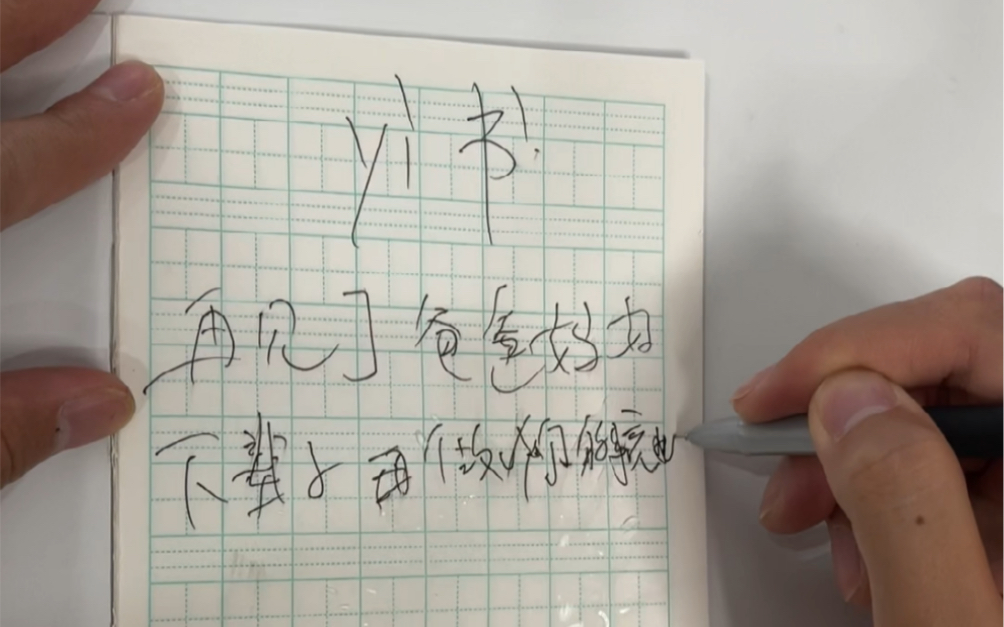 yi 书
再见了爸爸妈妈
下辈子再做你们的孩